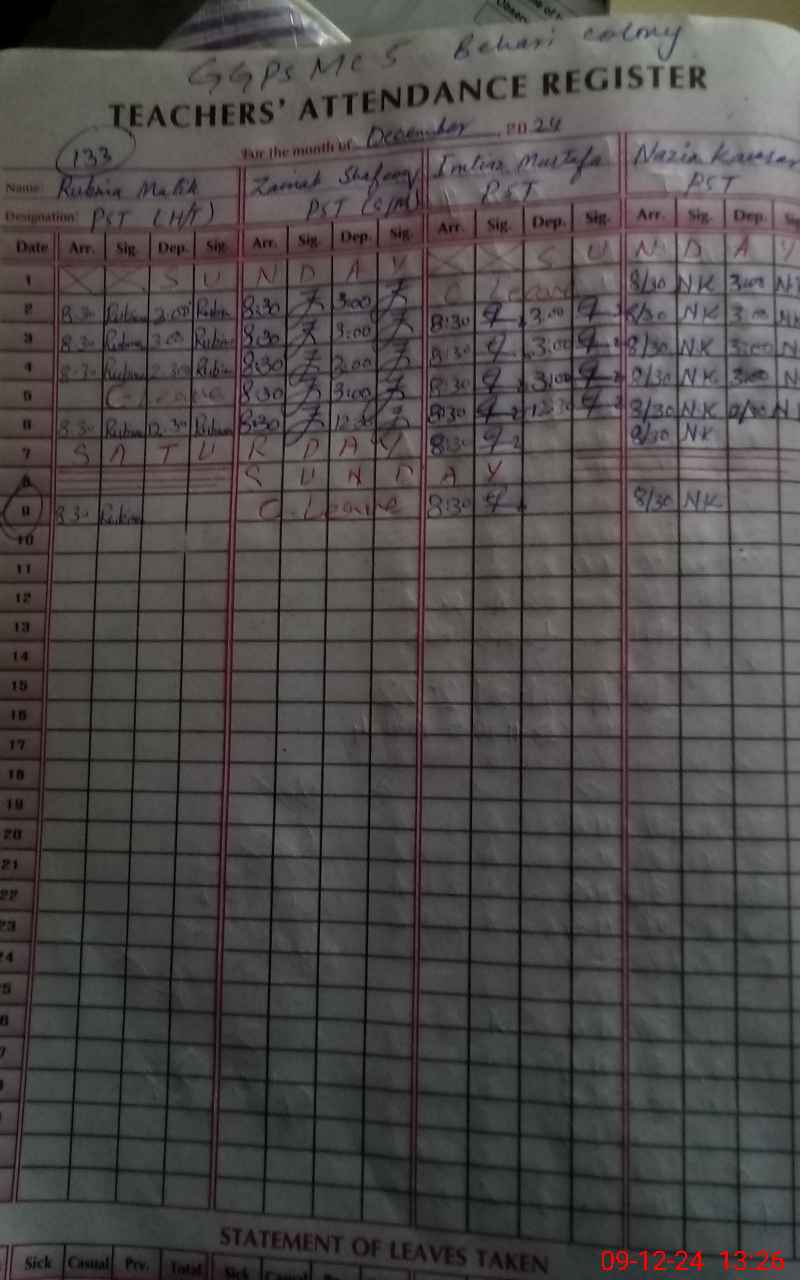 GGPS MC 5 Behari colony
TEACHERS' ATTENDANCE REGISTER
133
For the month of December 2024
Name: Rubnia Malik Zainab Imtiaz Mustafa Nazia Kausar
Designation: PST (H/T) PST (S/M) PST PST
Date Arr. Sig. Dep. Sig. Arr. Sig. Dep. Sig. Arr. Sig. Dep. Sig. Arr. Sig. Dep. Sig
1 S U N D A Y S U N D A Y
2 8:30 3:00 8:30 3:00 C Leave 8/30 NK 3:00 N
3 8:30 3:00 8:30 3:00 8:30 3:00 8/30 NK 3:00 NK
4 8:30 2:30 8:30 3:00 8:30 3:00 8/30 NK 3:00 N
5 C-Leave 8:30 3:00 8:30 3:00 8/30 NK 3:00 N
6 8:30 12:30 8:30 12:30 8:30 12:30 8/30 NK N
7 S A T U R D A Y 8:30 8/30 NK
8 S U N D A Y
9 8:30 C-Leave 8:30 8/30 NK
10
11
12
13
14
15
16
17
18
19
20
21
22
23
24
5
6
7
STATEMENT OF LEAVES TAKEN
Sick Casual Prv. Total Sick
09-12-24 13:26